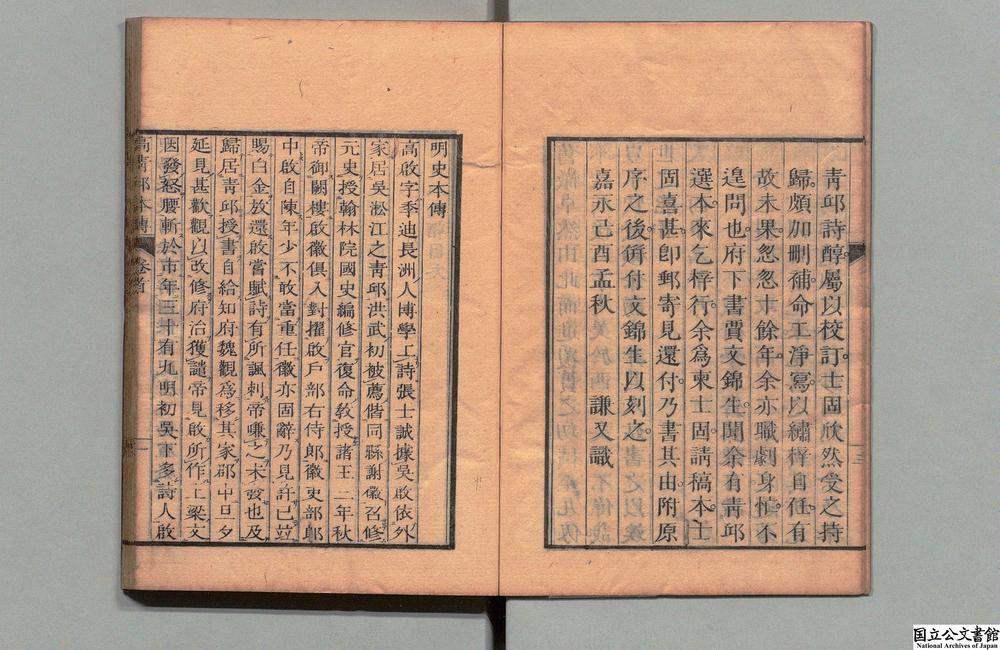 青邱詩醇屬以校訂士固欣然受之持
歸頗加刪補命工淨寫以繡梓自任有
故未果忽忽十餘年余亦職劇身忙不
遑問也府下書賈文錦生聞余有青邱
選本來乞梓行余爲柬士固請稿本士
固喜甚卽郵寄見還付乃書其由附原
序之後併付文錦生以刻之
嘉永己酉孟秋 謙又識
明史本傳
高啟字季迪長洲人博學工詩張士誠據吳啟依外
家居吳淞江之青邱洪武初被薦偕同縣謝徽召修
元史授翰林院國史編修官復命敎授諸王二年秋
帝御闕樓啟徽俱入對擢啟戶部右侍郎徽吏部郎
中啟自陳年少不敢當重任徽亦固辭乃見許已竝
賜白金放還啟嘗賦詩有所諷刺帝嗛之未發也及
歸居青邱授書自給知府魏觀爲移其家郡中旦夕
延見甚歡觀以改修府治獲譴帝見啟所作上梁文
因發怒腰斬於市年三十有九明初吳下多詩人啟
高青邱本傳 卷首 一
国立公文書館
National Archives of Japan